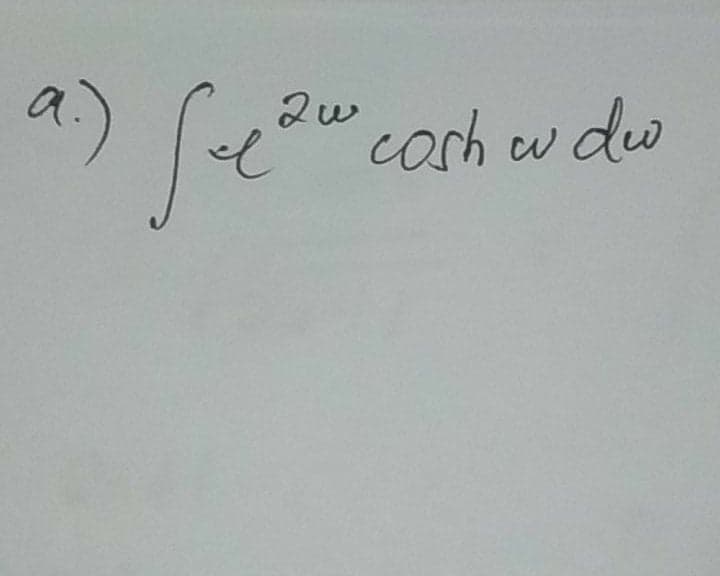 a.) ∫e^{2w} cosh w dw